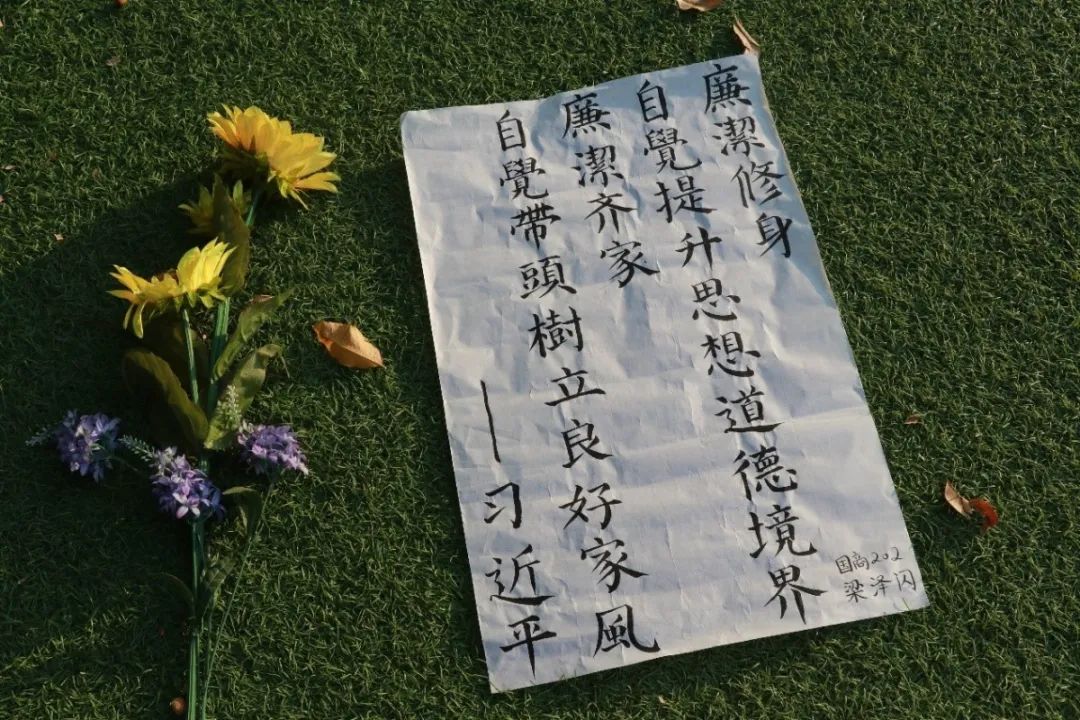 廉潔修身
自覺提升思想道德境界
廉潔齐家
自覺帶頭樹立良好家風
——习近平
国商202
梁泽闪